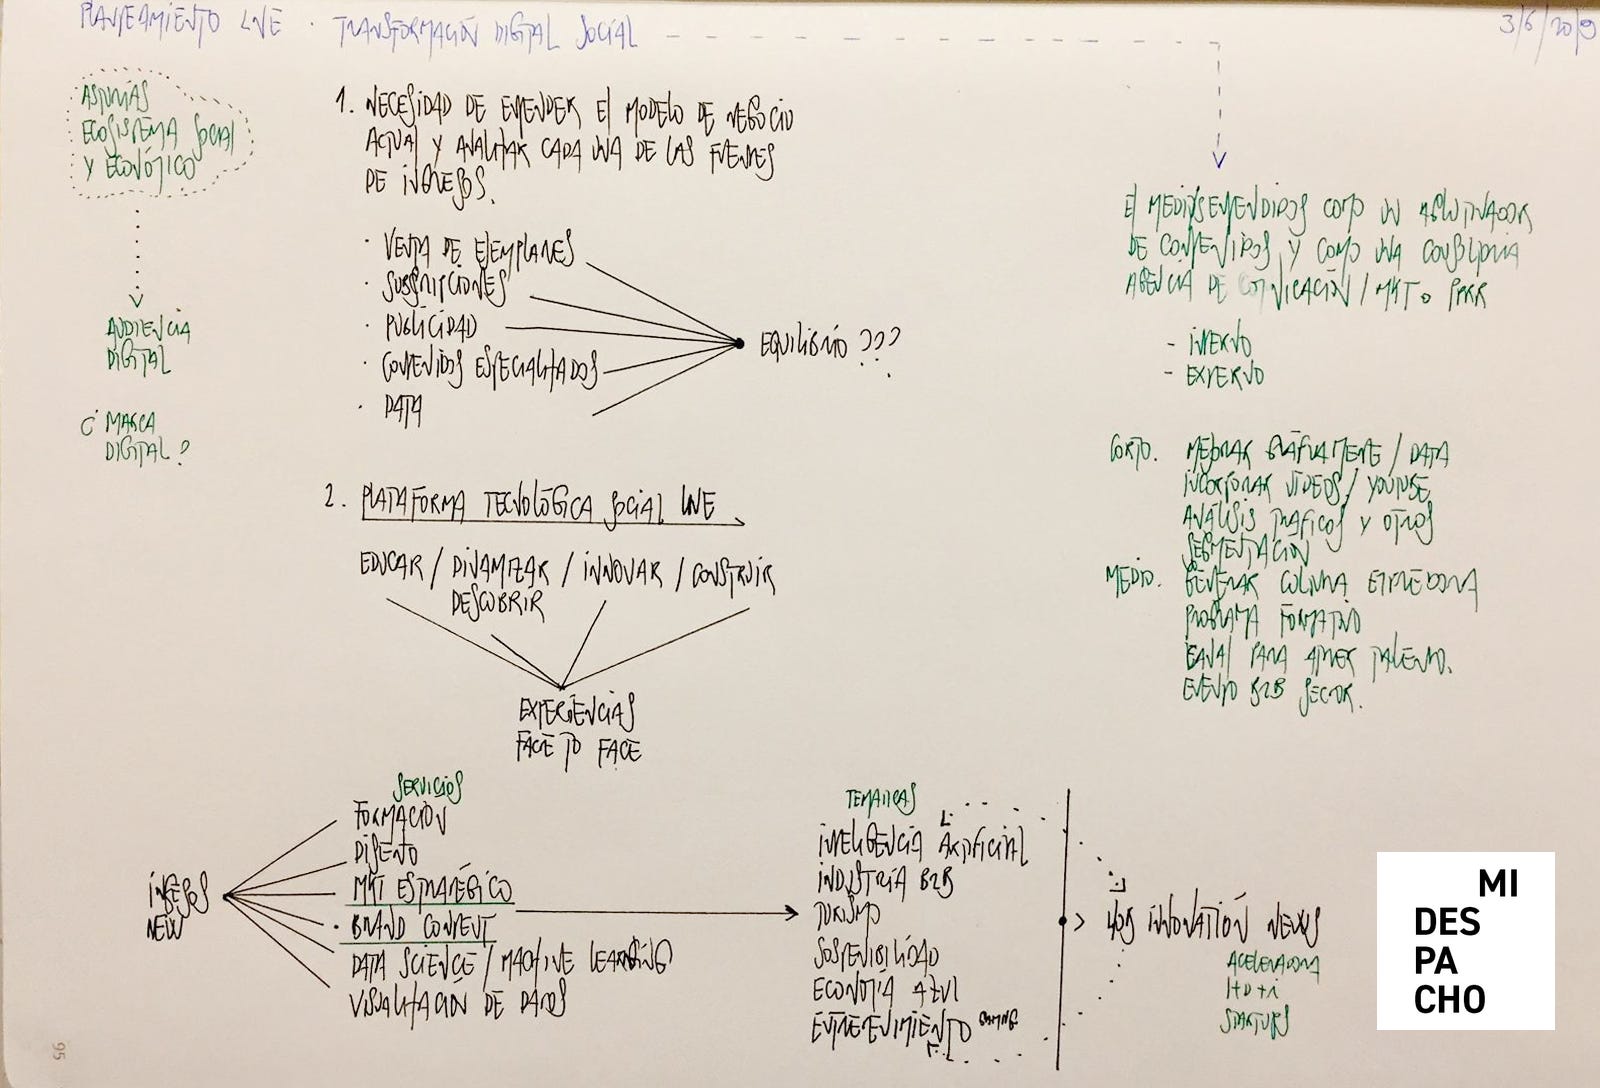 PLANTEAMIENTO LNE · TRANSFORMACIÓN DIGITAL SOCIAL
3/6/2019
ASTURIAS
ECOSISTEMA SOCIAL
Y ECONÓMICO
AUDIENCIA
DIGITAL
¿ MARCA
DIGITAL?
1. NECESIDAD DE ENTENDER EL MODELO DE NEGOCIO
ACTUAL Y ANALIZAR CADA UNA DE LAS FUENTES
DE INGRESOS.
· VENTA DE EJEMPLARES
· SUBSCRIPCIONES
· PUBLICIDAD
· CONTENIDOS ESPECIALIZADOS
· DATA
EQUILIBRIO ???
2. PLATAFORMA TECNOLÓGICA SOCIAL LNE
EDUCAR / DINAMIZAR / INNOVAR / CONSTRUIR
DESCUBRIR
EXPERIENCIAS
FACE TO FACE
El MEDIOS ENTENDIDOS COMO UN AGLUTINADOR
DE CONTENIDOS Y COMO UNA
AGENCIA DE COMUNICACIÓN / MKT o PPRR
- INTERNO
- EXTERNO
CORTO. MEJORAR GRÁFICAMENTE / DATA
INCORPORAR VIDEOS / YOUTUBE
ANÁLISIS TRÁFICOS Y OTROS
SEGMENTACIÓN
MEDIO. GENERAR COLUMNA
PROGRAMA FORMATIVO
CANAL PARA ATRAER TALENTO.
EVENTO B2B SECTOR.
INGRESOS
NEW
SERVICIOS
FORMACIÓN
DISEÑO
MKT ESTRATÉGICO
· BRAND CONTENT
DATA SCIENCE / MACHINE LEARNING
VISUALIZACIÓN DE DATOS
TEMÁTICAS
INTELIGENCIA ARTIFICIAL
INDUSTRIA B2B
TURISMO
SOSTENIBILIDAD
ECONOMÍA AZUL
ENTRETENIMIENTO GAMING
INNOVATION NEWS
ACELERADORA
I+D+i
STARTUPS
95
MI
DES
PA
CHO